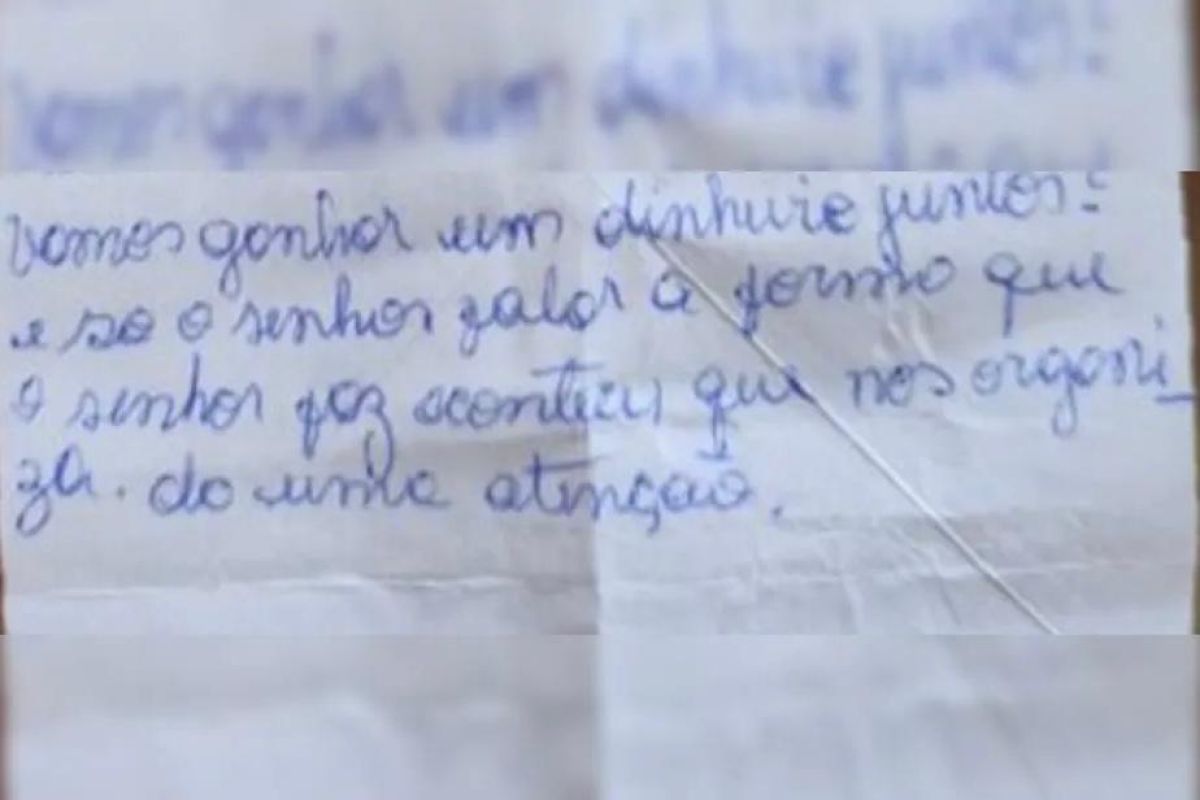 vamos ganhar um dinhuire juntos?
e so o senhor falar a forma que
o senhor faz acontecer que nos organi_
za. da uma atenção.